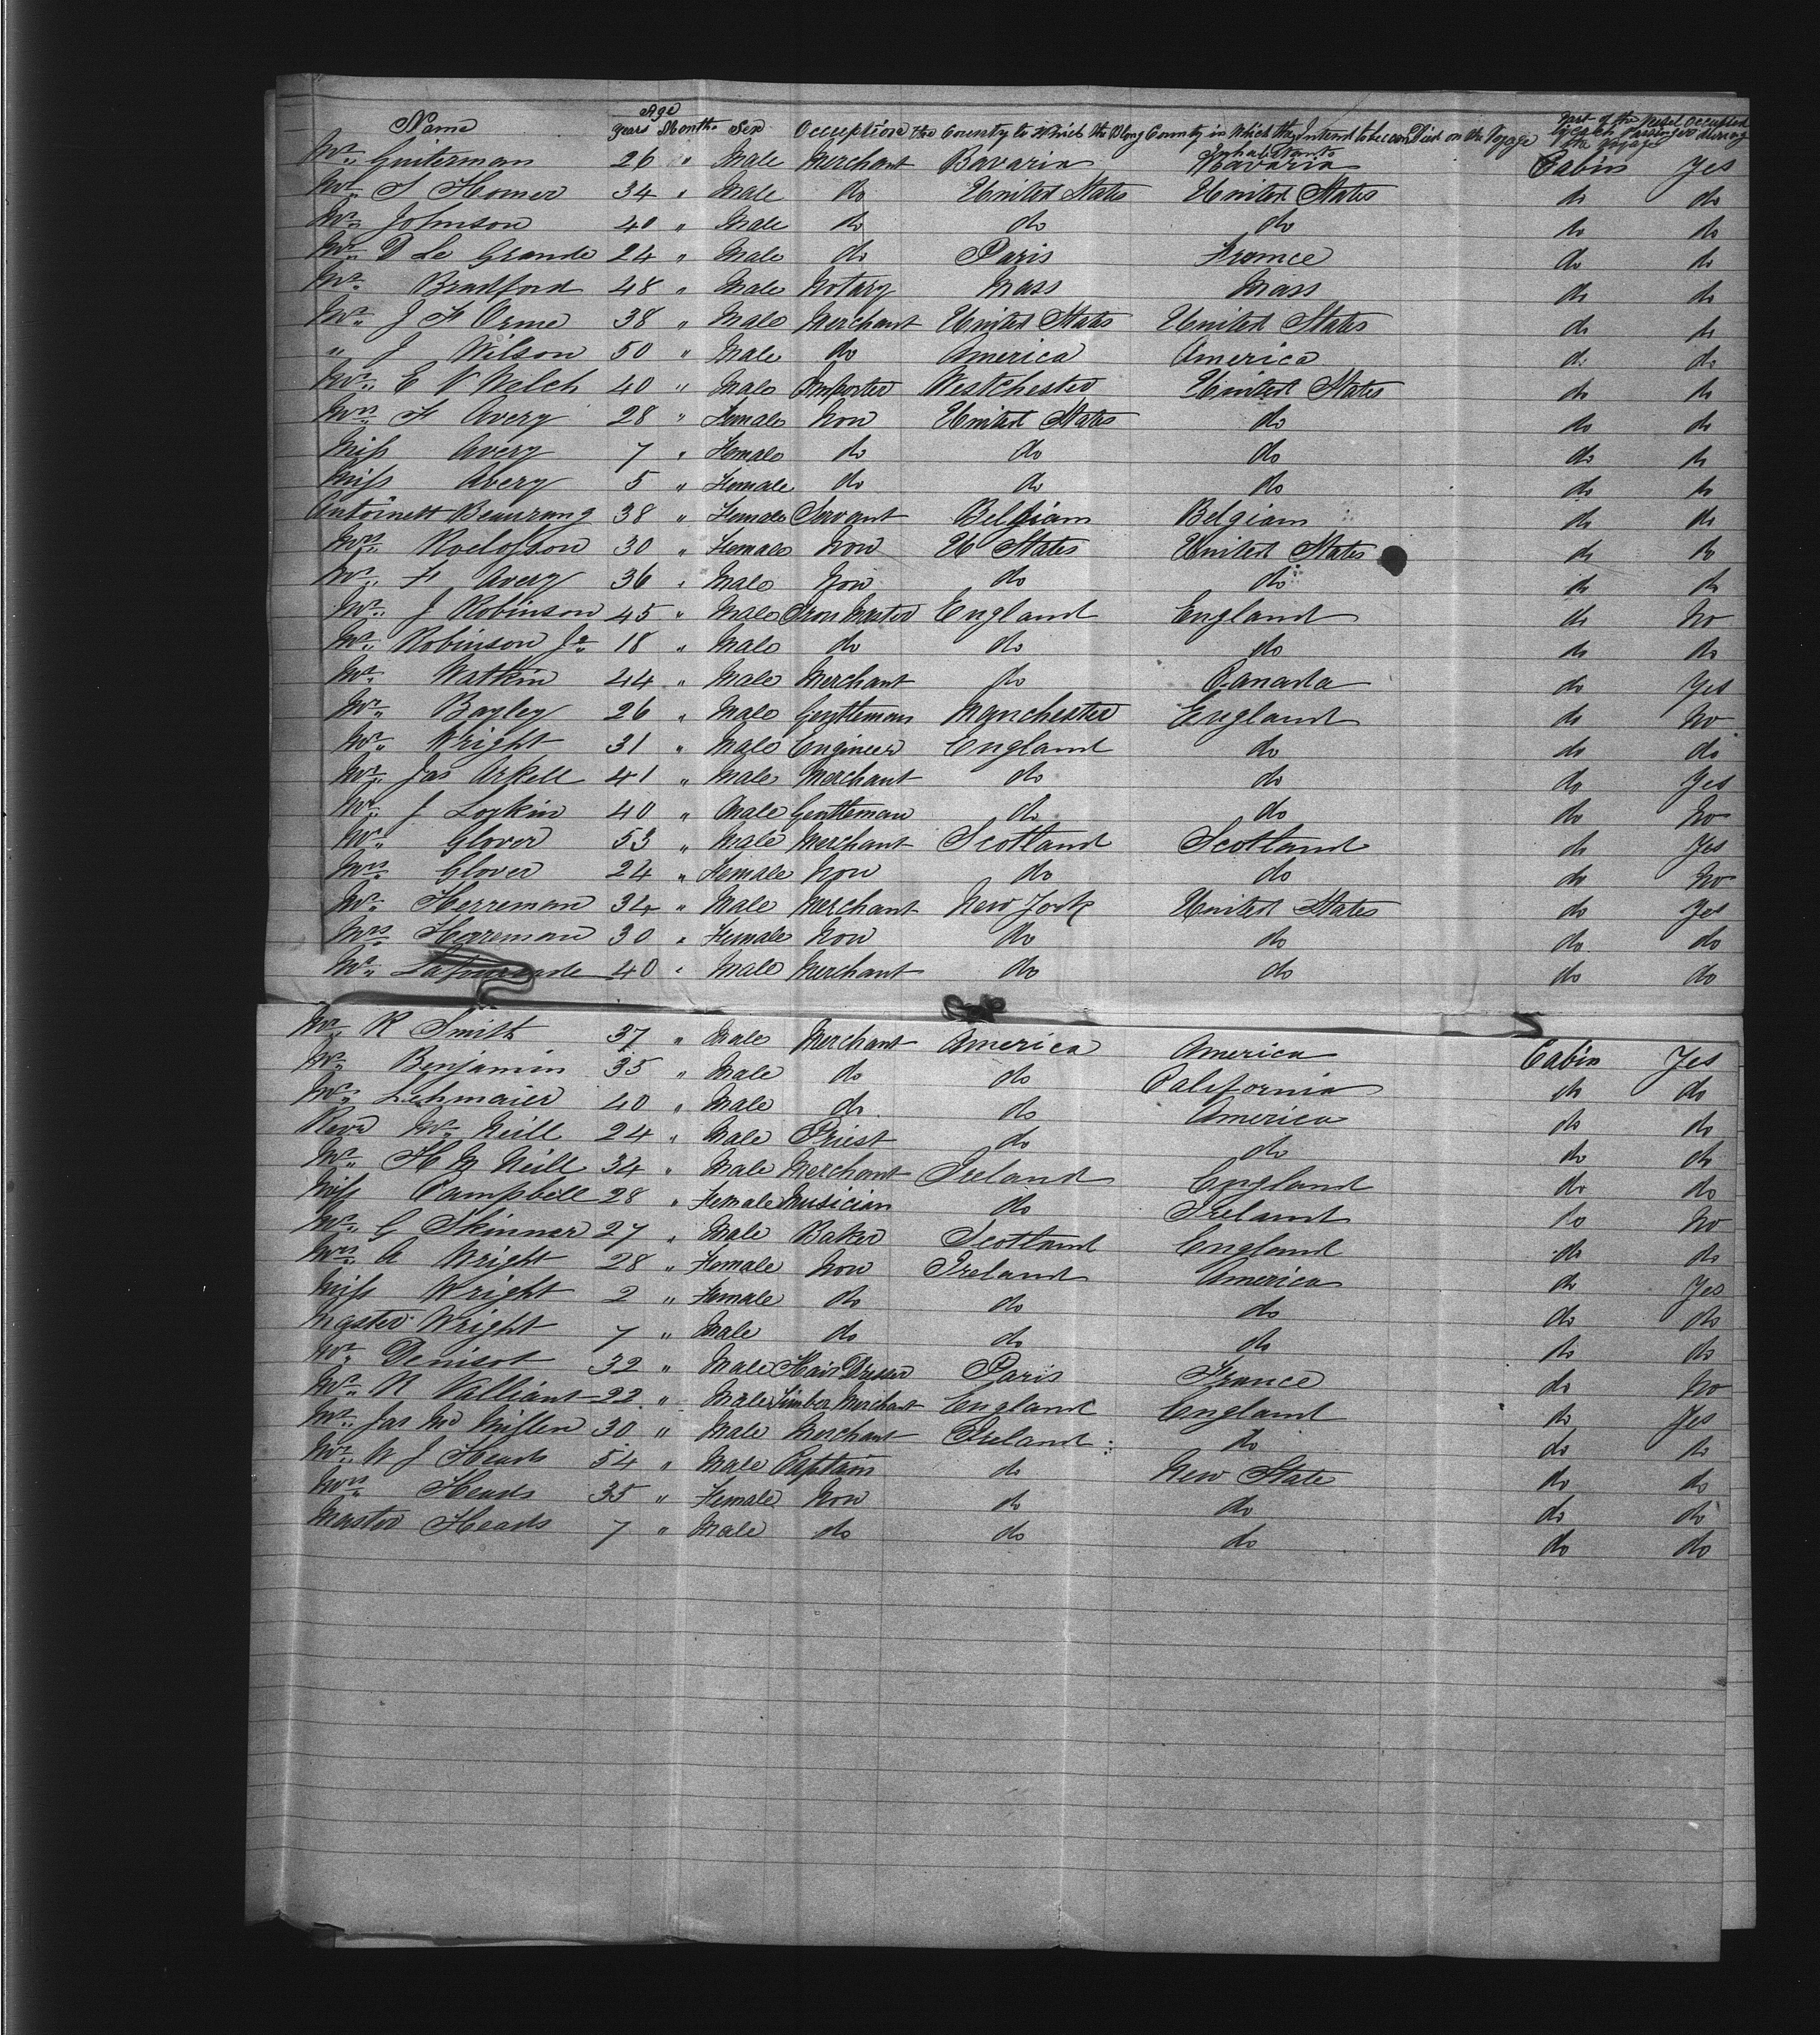 Name Age Years Months Sex Occuption the County to Which the Blong County in Which the Intend to becom Inhabitants Died on the Voyage Part of the Vessel Occupied by each Passenger during the Voyage
Mr. Guiterman 26 " Male Merchant Bavaria Bavaria Cabin Yes
Mr. S Homer 34 " Male do United States United States do do
Mr. Johnson 40 " Male do do do do do
Mr. D Le Grande 24 " Male do Paris France do do
Mr. Bradford 48 " Male Notary Mass Mass do do
Mr. J F Orme 38 " Male Merchant United States United States do do
" J Wilson 50 " Male do America America do do
Mr. E V Welch 40 " Male Importer Westchester United States do do
Mrs. F Avery 28 " Female Non United States do do do
Miss Avery 7 " Female do do do do do
Miss Avery 5 " Female do do do do do
Antoinett Beaurang 38 " Female Servant Belgiam Belgiam do do
Mrs. Roelofson 30 " Female Non U States United States do do
Mr. F Avery 36 " Male Non do do do do
Mr. J Robinson 45 " Male Iron Master England England do No
Mr. Robinson Jr 18 " Male do do do do do
Mr. Watkin 44 " Male Merchant do Canada do Yes
Mr. Bayley 26 " Male Gentleman Manchester England do No
Mr. Wright 31 " Male Engineer England do do do
Mr. Jas Arkell 41 " Male Merchant do do do Yes
Mr. J 40 " Male Gentleman do do do No
Mr. Glover 53 " Male Merchant Scotland Scotland do Yes
Mrs. Glover 24 " Female Non do do do No
Mr. Herreman 34 " Male Merchant New York United States do Yes
Mrs. Herreman 30 " Female Non do do do do
Mr. 40 " Male Merchant do do do do
Mr. R Smith 37 " Male Merchant America America Cabin Yes
Mr. Benjamin 35 " Male do do California do do
Mr. Lehmaier 40 " Male do do America do do
Revd Mr. Neill 24 " Male Priest do do do do
Mr. H M Neill 34 " Male Merchant Ireland England do do
Miss Campbell 28 " Female Musician do Ireland do No
Mr. G Skinner 27 " Male Baker Scotland England do do
Mrs. A Wright 28 " Female Non Ireland America do Yes
Miss Wright 2 " Female do do do do do
Master Wright 7 " Male do do do do do
Mr. Denisot 32 " Male Hair Dresser Paris France do No
Mr. R Valliant 22 " Male Timber Merchant England England do Yes
Mr. Jas Mc 30 " Male Merchant Ireland do do do
Mr. W J Heads 54 " Male Captain do New State do do
Mrs. Heads 35 " Female Non do do do do
Master Heads 7 " Male do do do do do